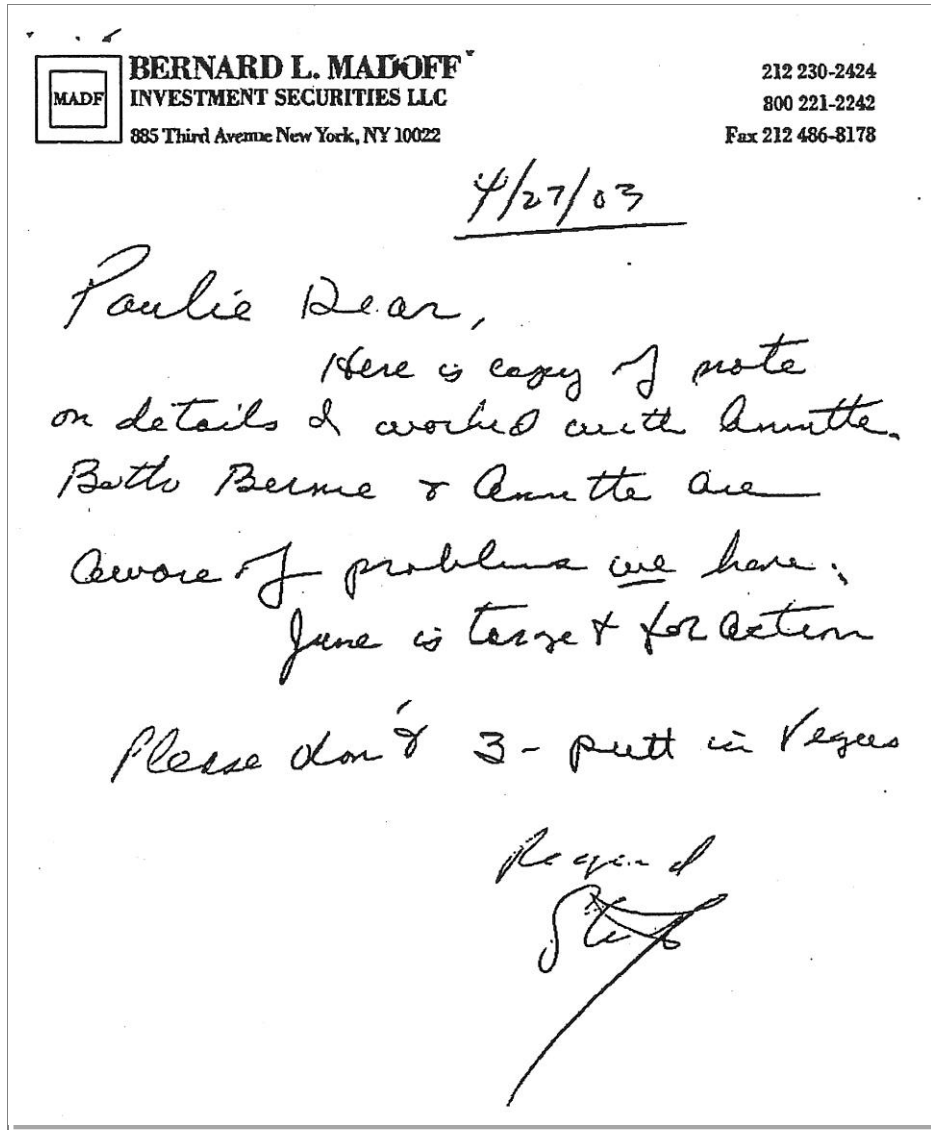 MADF
BERNARD L. MADOFF
INVESTMENT SECURITIES LLC
885 Third Avenue New York, NY 10022
212 230-2424
800 221-2242
Fax 212 486-8178
4/27/03
Paulie Dear,
Here is copy of note
on details I worked with Annette.
Both Bernie & Annette are
aware of problems we have.
June is target for action
Please don't 3-putt in Vegas
Regard